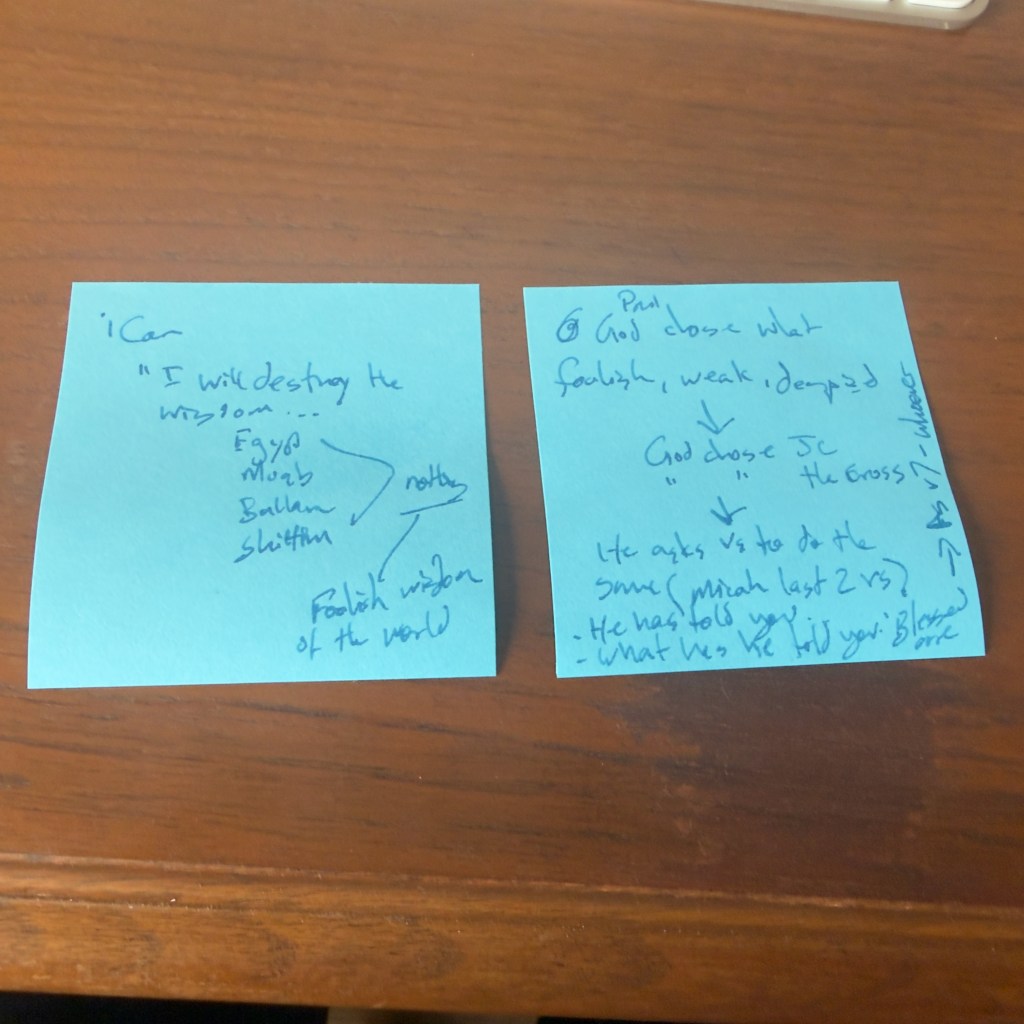 1 Cor
"I will destroy the
wisdom ...
Egypt
Moab
Ballam
Shittim
nothing
Foolish wisdom
of the world
Paul
God chose what
foolish, weak, despized
God chose JC
" " the Cross
He asks us to do the
same (Micah last 2 vs)
- He has told you
- what has he told you:
Blessed
are
→ Ps v? - whoever